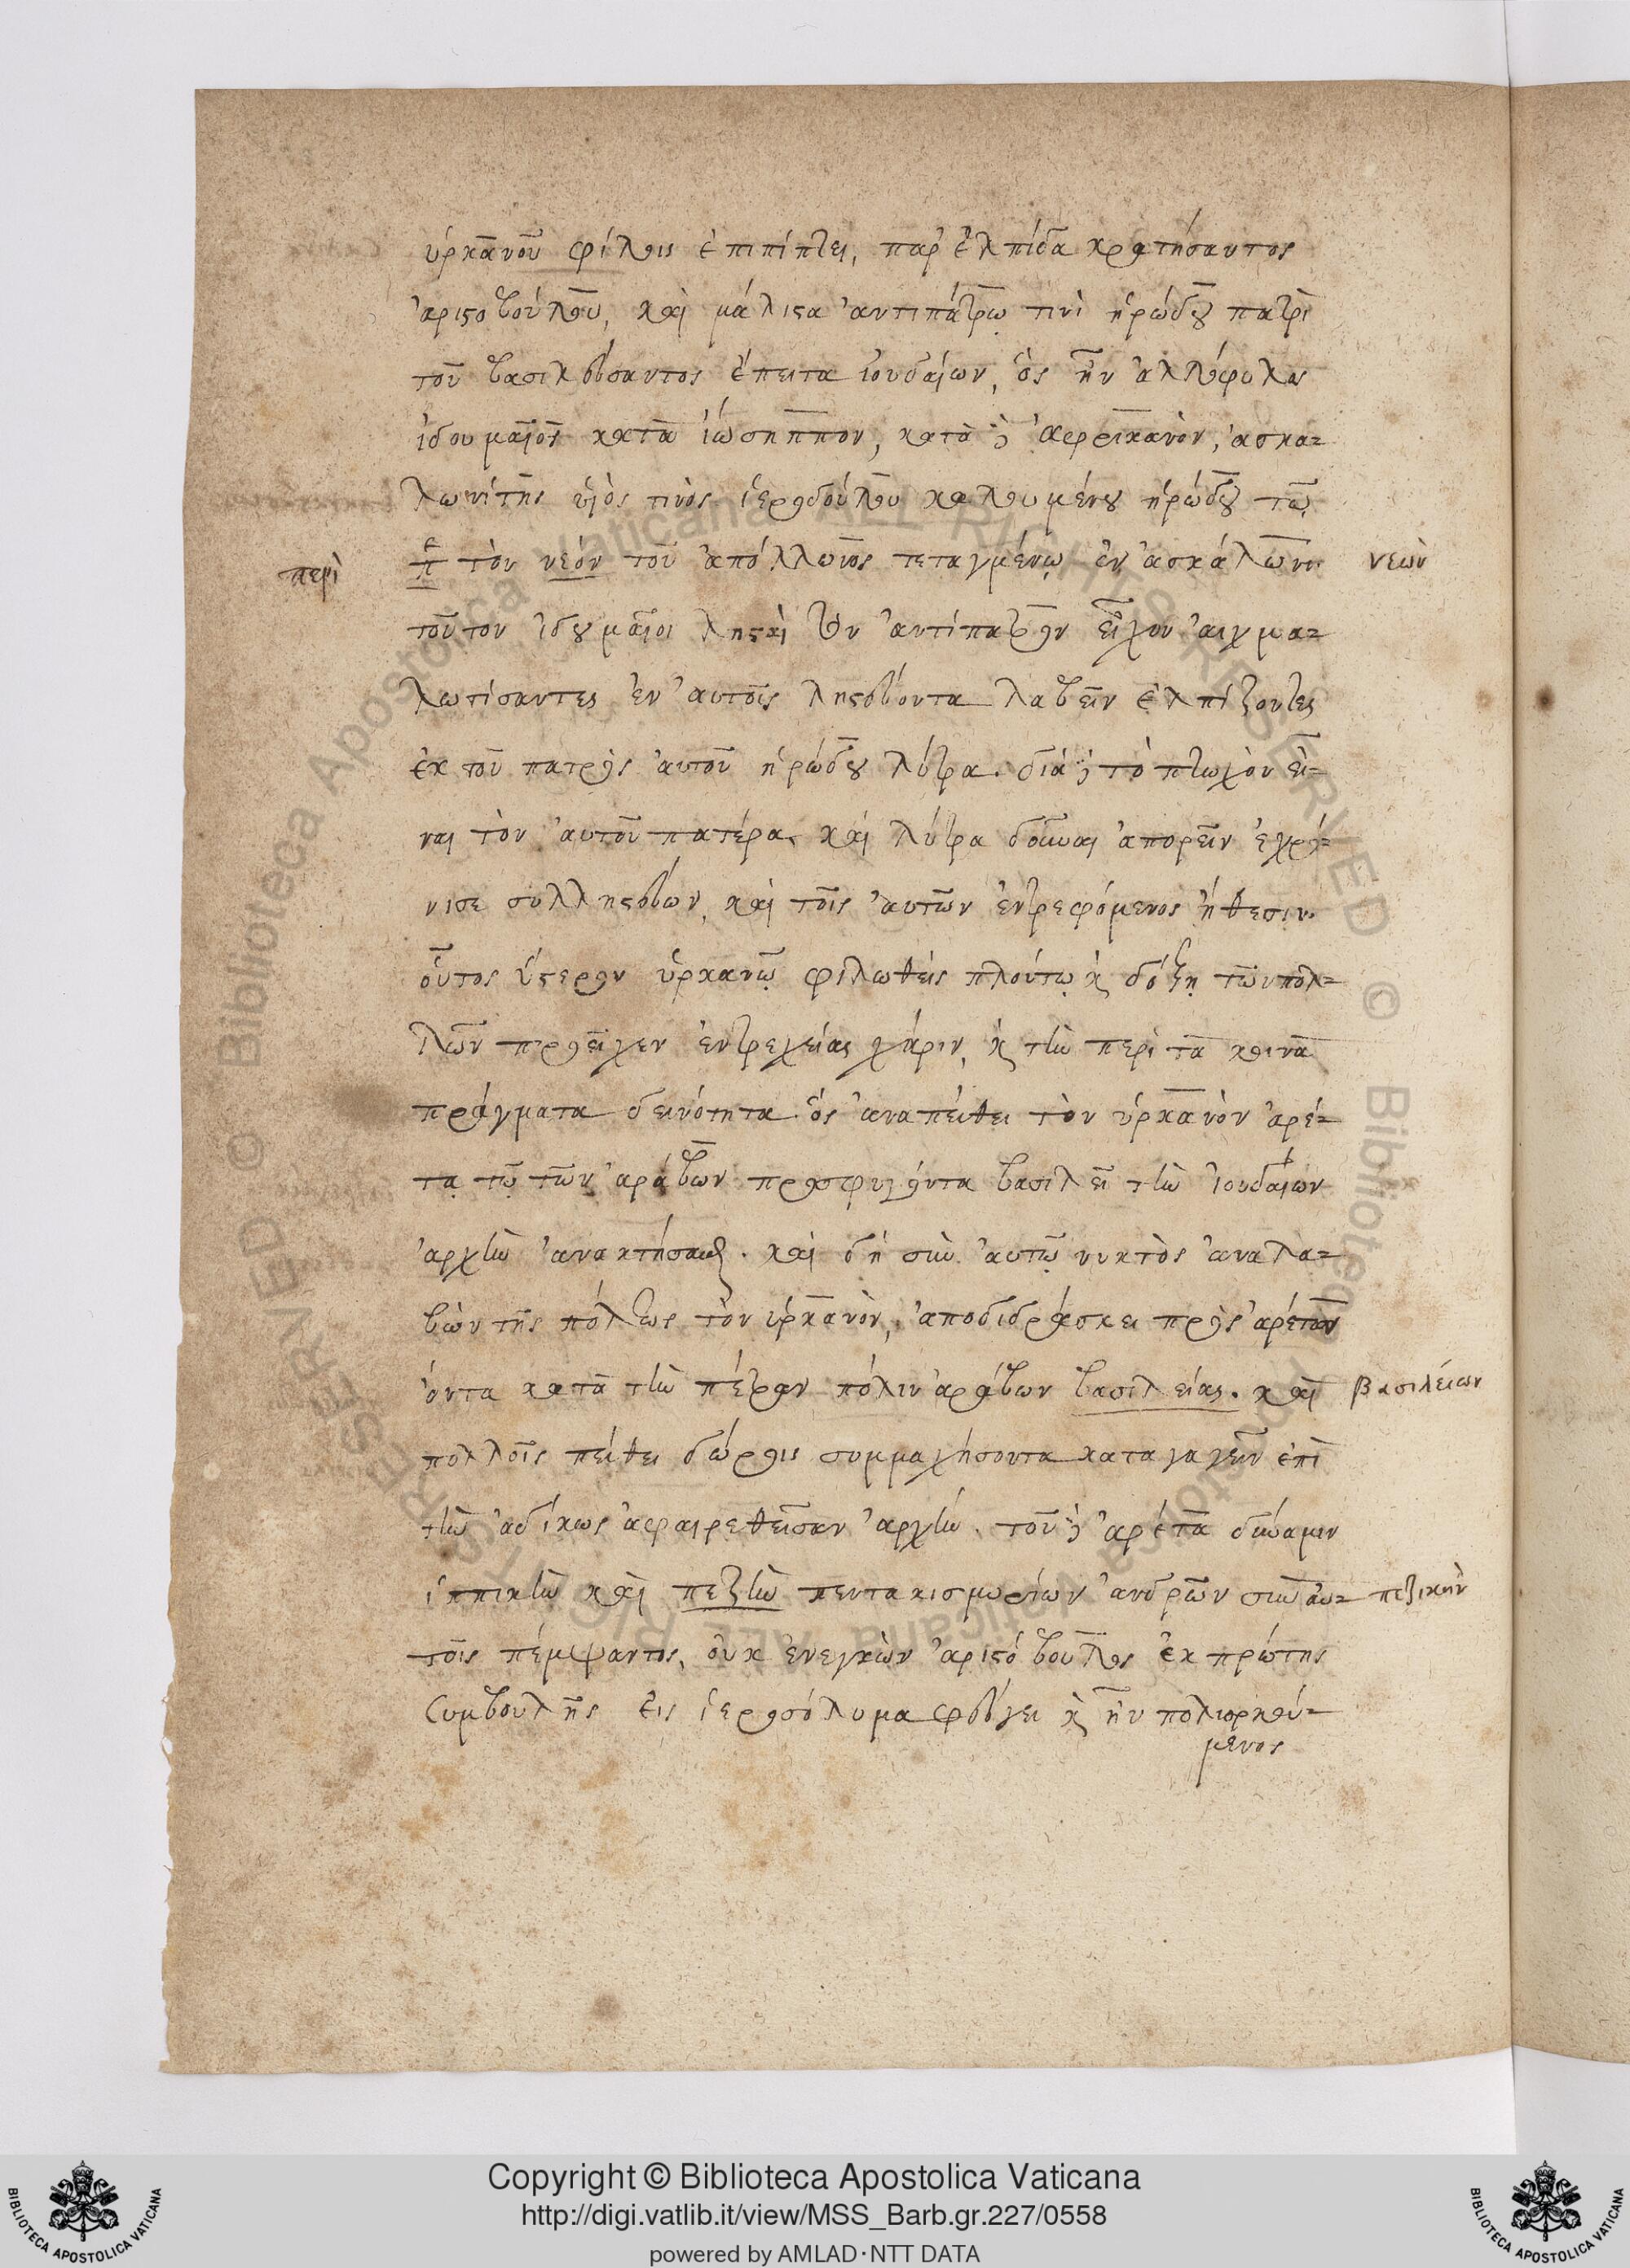 ὑρκανοῦ φίλοις ἐπιπίπτει, παρ' ἐλπίδα κρατήσαντος
ἀριστοβούλου, καὶ μάλιστα ἀντιπάτρῳ τινὶ ἡρώδου πατρὶ
τοῦ βασιλεύσαντος ἔπειτα ἰουδαίων, ὃς ἦν ἀλλόφυλος
ἰδουμαῖος κατὰ ἰώσηππον, κατὰ δὲ ἀφρικανὸν, ἀσκα=
λωνίτης υἱὸς τινὸς ἱεροδούλου καλουμένου ἡρώδου τῷ
περὶ π τὸν νεόν τοῦ ἀπόλλωνος τεταγμένῳ ἐν ἀσκάλωνι νεὼν
τοῦτον ἰδουμαῖοι λησταὶ τὸν ἀντίπατρον εἷλον αἰχμα=
λωτίσαντες ἐν αὐτοῖς ληστεύοντα λαβεῖν ἐλπίζοντες
ἐκ τοῦ πατρὸς αὐτοῦ ἡρώδου λύτρα. διὰ δὲ τὸ πτωχὸν εἶ=
ναι τὸν αὐτοῦ πατέρα καὶ λύτρα δοῦναι ἀπορεῖν ἐχρό=
νισε συλληστεύων, καὶ τοῖς αὐτῶν ἐντρεφόμενος ἤθεσιν.
οὗτος ὕστερον ὑρκανῷ φιλωθεὶς πλούτῳ καὶ δόξῃ τῶν πολ=
λῶν προεῖχεν ἐντρεχείας χάριν, καὶ τὴν περὶ τὰ κοινὰ
πράγματα δεινότητα ὃς ἀναπείθει τὸν ὑρκανὸν ἀρέ=
τᾳ τῷ τῶν ἀράβων προσφυγόντα βασιλεῖ τὴν ἰουδαίων
ἀρχὴν ἀνακτήσασθαι. καὶ δὴ σὺν αὐτῷ νυκτὸς ἀναλα=
βὼν τῆς πόλεως τὸν ὑρκανὸν, ἀποδιδράσκει πρὸς ἀρέταν
ὄντα κατὰ τὴν πέτραν πόλιν ἀράβων βασιλείας. καὶ βασιλείων
πολλοῖς πείθει δώροις συμμαχήσοντα καταγαγεῖν ἐπὶ
τὴν ἀδίκως ἀφαιρεθεῖσαν ἀρχήν. τοῦ δὲ ἀρέτα δύναμιν
ἱππικὴν καὶ πεζὴν πεντακισμυρίων ἀνδρῶν σὺν αὐ= πεζικὴν
τοῖς πέμψαντος, οὐκ ἐνεγκὼν ἀριστόβουλος ἐκ πρώτης
συμβουλῆς εἰς ἱεροσόλυμα φεύγει καὶ ἦν πολιορκού=
μενος
Copyright © Biblioteca Apostolica Vaticana
http://digi.vatlib.it/view/MSS_Barb.gr.227/0558
powered by AMLAD·NTT DATA
BIBLIOTECA APOSTOLICA VATICANA
BIBLIOTECA APOSTOLICA VATICANA